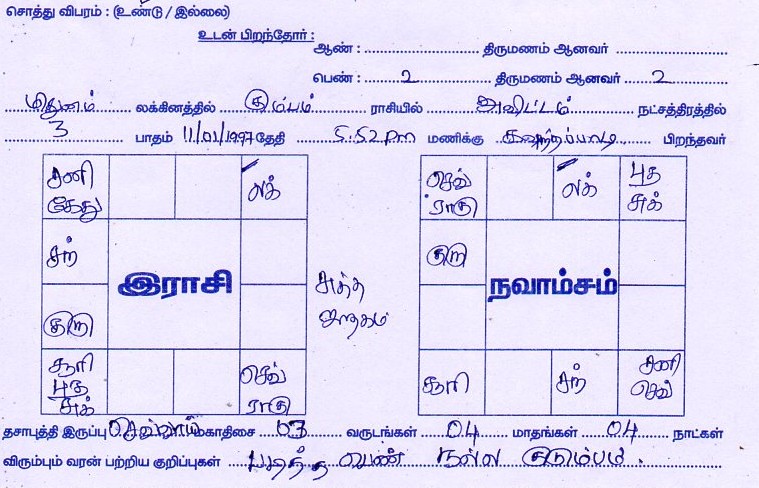 சொத்து விபரம் : (உண்டு / இல்லை)
உடன் பிறந்தோர் :
ஆண் : .................... திருமணம் ஆனவர் ....................
பெண் : 2 திருமணம் ஆனவர் 2
மிதுனம் லக்கினத்தில் கும்பம் ராசியில் அவிட்டம் நட்சத்திரத்தில்
3 பாதம் 11/01/1997 தேதி 5:52 pm மணிக்கு பிறந்தவர்
சனி கேது லக்
செவ் ராகு லக் புத சுக்
சந் குரு
இராசி சுத்த ஜாதகம் நவாம்சம்
குரு
சூரி புத சுக் செவ் ராகு
சூரி சந் சனி
தசாபுத்தி இருப்பு செவ்வாய் மகாதிசை 03 வருடங்கள் 04 மாதங்கள் 04 நாட்கள்
விரும்பும் வரன் பற்றிய குறிப்புகள் படித்த பெண் நல்ல குடும்பம்.